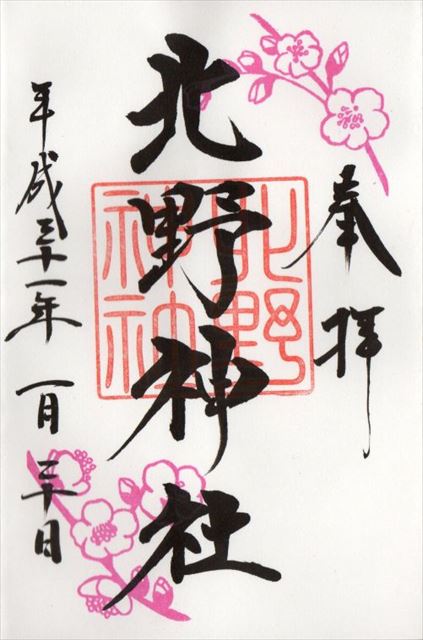 奉拝
北野神社
北野神社
平成三十一年一月三十日